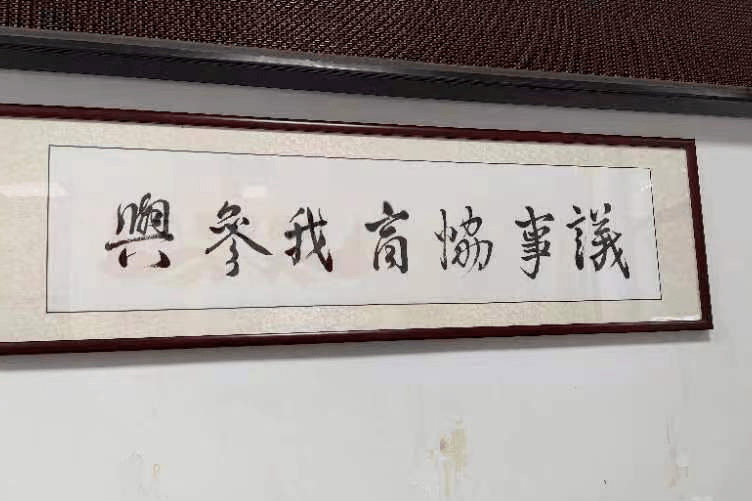 議事協商我參與